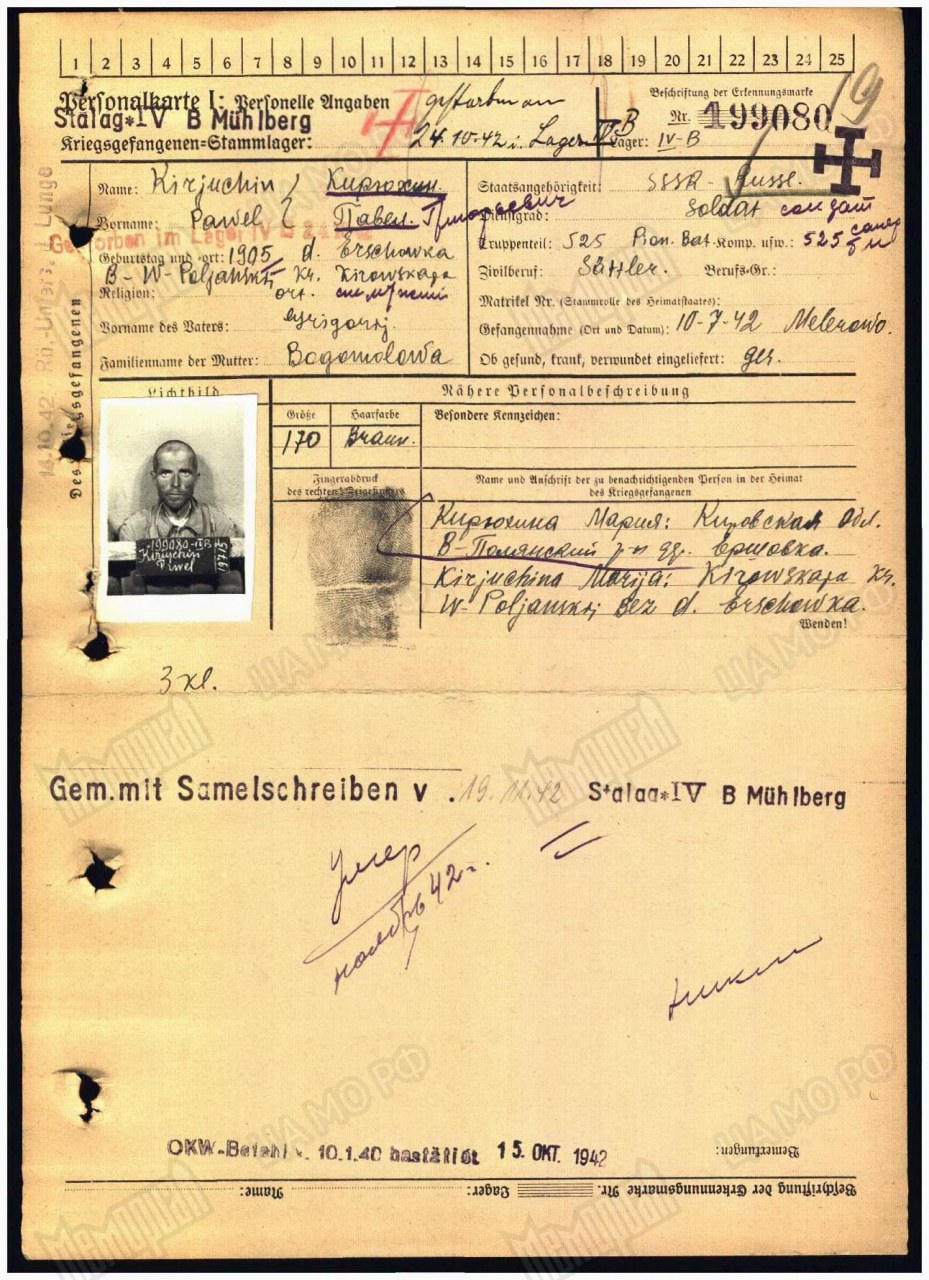 1 2 3 4 5 6 7 8 9 10 11 12 13 14 15 16 17 18 19 20 21 22 23 24 25
19
Personalkarte I: Personelle Angaben
Stalag*IV B Mühlberg
Kriegsgefangenen=Stammlager:
gestorben am
24.10.42 i. Lager IV B
Beschriftung der Erkennungsmarke
Nr. 199080
Lager: IV-B
Name: Kirjuchin / Кирюхин.
Vorname: Pawel / Павел. Григорьевич
Gestorben im Lager IV B
Geburtstag und -ort: 1905 d. Erschowka
B-W-Poljanskij Kr. Kirowskaja
Religion: ort.
Vorname des Vaters: Grigorij.
Familienname der Mutter: Bogomolowa
Staatsangehörigkeit: SSSR - Russe.
Dienstgrad: Soldat солдат
Truppenteil: 525 Pion. Bat. Komp. usw.: 525
Zivilberuf: Sattler. Berufs-Gr.:
Matrikel Nr. (Stammrolle des Heimatstaates):
Gefangennahme (Ort und Datum): 10-7-42 Melerowo.
Ob gesund, krank, verwundet eingeliefert: ges.
14.10.42 Rö.-Unters. Lunge
Des Kriegsgefangenen
Lichtbild
Nähere Personalbeschreibung
Größe Haarfarbe Besondere Kennzeichen:
170 Braun.
Fingerabdruck
des rechten Zeigefingers
Name und Anschrift der zu benachrichtigenden Person in der Heimat
des Kriegsgefangenen
Кирюхина Мария: Кировская Обл.
В-Полянский р-н д. Ершовка.
Kirjuchina Marija: Kirowskaja Kr.
W-Poljanskij Bez d. Erschowka.
Wenden!
-199080-IVB
Kirjuchin
Pawel
3 kl.
Gem. mit Samelschreiben v. 19.11.42 Stalag*IV B Mühlberg
Умер
ноябрь 42 г.
OKW-Befehl v. 10.1.40 bestätigt 15. OKT. 1942
Bemerkungen:
Beschriftung der Erkennungsmarke Nr. Lager: Name:
Мемориал
ЦАМО РФ